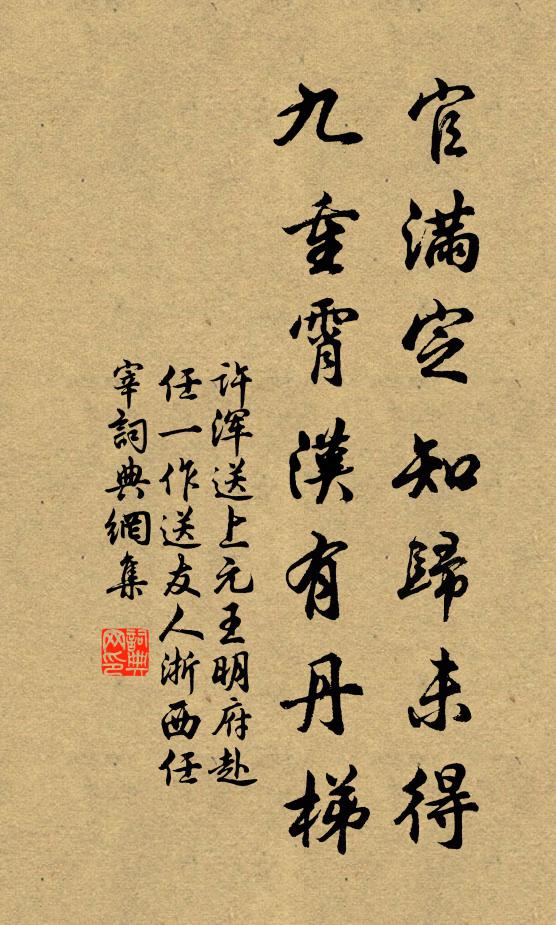 官滿定知歸未得
九重霄漢有丹梯
许浑送上元王明府赴
任一作送友人浙西任
宰詞典網集
詞典
网印